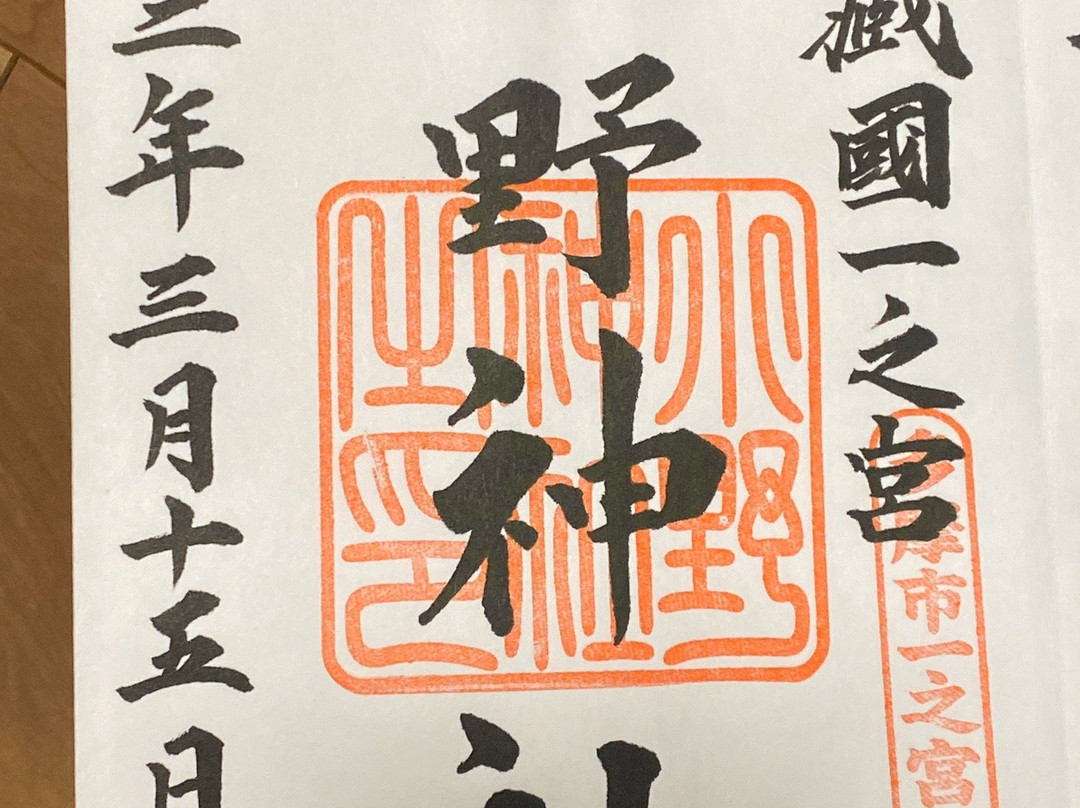 藏國一之宮
摩市一之宮
野神
小野
神社
之印
三年三月十五日